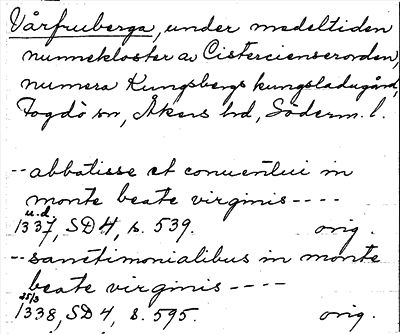 Vårfruberga, under medeltiden
nunnekloster av Cistercienserorden,
numera Kungsbergs kungsladugård,
Fogdö sn, Åkers hd, Söderm. l.
-- abbatisse et conuentui in
monte beate virginis ----
u.d.
1337, SD 4, s. 539. orig.
-- sanctimonialibus in monte
beate virginis ----
25/3
1338, SD 4, s. 595. orig.